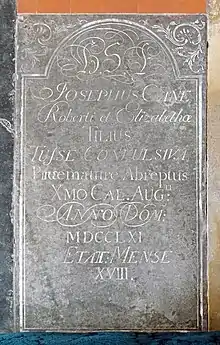 H.S.J
JOSEPHUS CANE
Roberti et Elizabethæ
FILIUS
TUSSE CONVULSIVA
Præmature Abreptus
XMO CAL. AUG:
ANNO DOM:
MDCCLXI
ÆTAT: MENSE
XVIII.